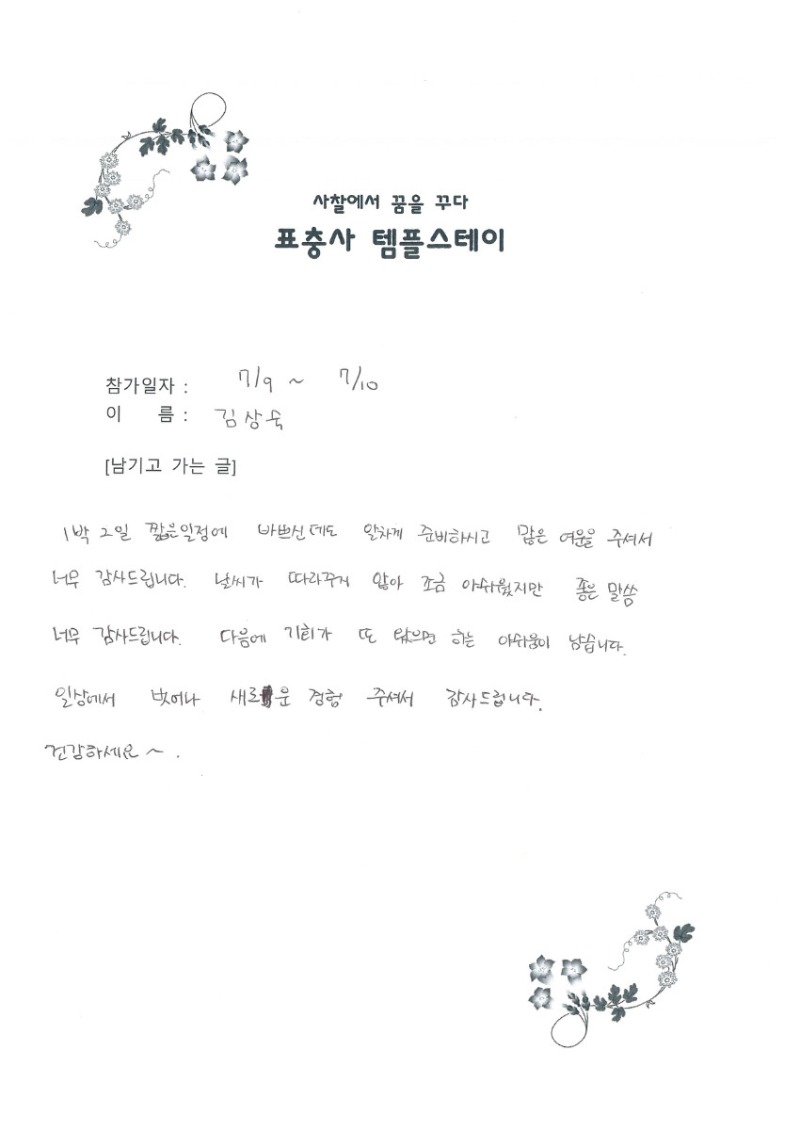 사찰에서 꿈을 꾸다
표충사 템플스테이
참가일자 : 7/9 ~ 7/10
이 름 : 김상숙
[남기고 가는 글]
1박 2일 짧은일정에 바쁘신데도 알차게 준비하시고 많은 여운을 주셔서
너무 감사드립니다. 날씨가 따라주지 않아 조금 아쉬웠지만 좋은 말씀
너무 감사드립니다. 다음에 기회가 또 있으면 하는 아쉬움이 남습니다.
일상에서 벗어나 새로운 경험 주셔서 감사드립니다.
건강하세요~.